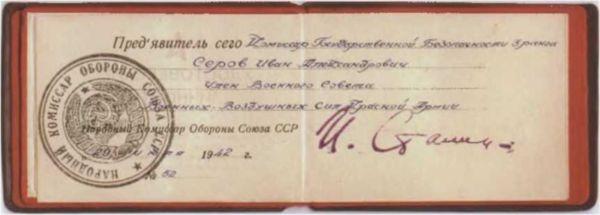 Пред'явитель сего Комиссар Государственной Безопасности 3 ранга
Серов Иван Александрович
Член Военного Совета
Военных-Воздушных Сил Красной Армии
Народный Комиссар Обороны Союза ССР
И. Сталин
1942 г.
№ 52
НАРОДНЫЙ КОМИССАР ОБОРОНЫ СОЮЗА ССР